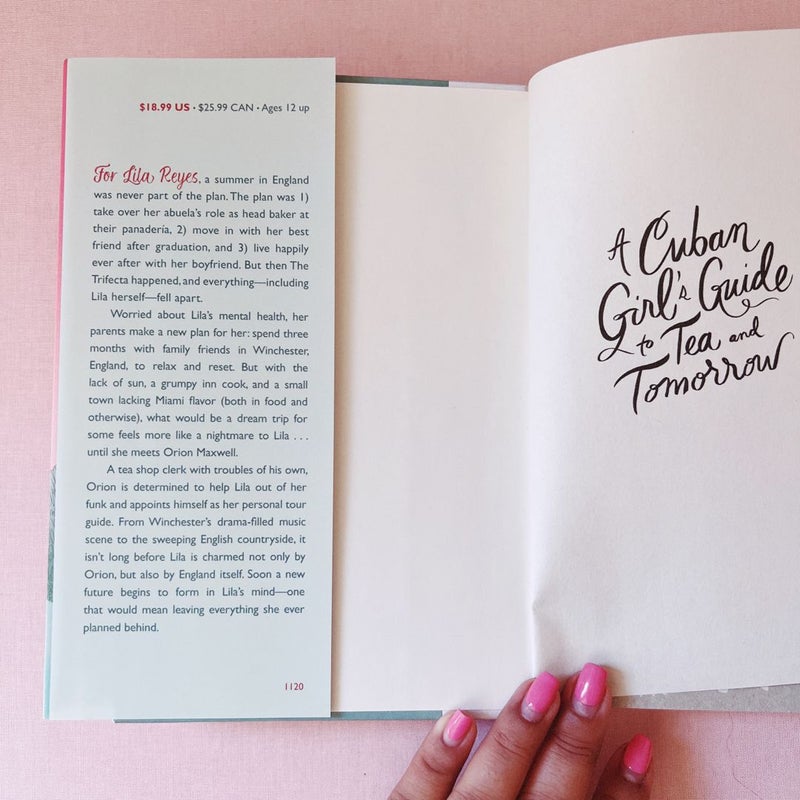 $18.99 US • $25.99 CAN • Ages 12 up
For Lila Reyes, a summer in England
was never part of the plan. The plan was 1)
take over her abuela's role as head baker at
their panadería, 2) move in with her best
friend after graduation, and 3) live happily
ever after with her boyfriend. But then The
Trifecta happened, and everything—including
Lila herself—fell apart.
Worried about Lila's mental health, her
parents make a new plan for her: spend three
months with family friends in Winchester,
England, to relax and reset. But with the
lack of sun, a grumpy inn cook, and a small
town lacking Miami flavor (both in food and
otherwise), what would be a dream trip for
some feels more like a nightmare to Lila . . .
until she meets Orion Maxwell.
A tea shop clerk with troubles of his own,
Orion is determined to help Lila out of her
funk and appoints himself as her personal tour
guide. From Winchester's drama-filled music
scene to the sweeping English countryside, it
isn't long before Lila is charmed not only by
Orion, but also by England itself. Soon a new
future begins to form in Lila's mind—one
that would mean leaving everything she ever
planned behind.
1120
A Cuban
Girl's Guide
to Tea and
Tomorrow